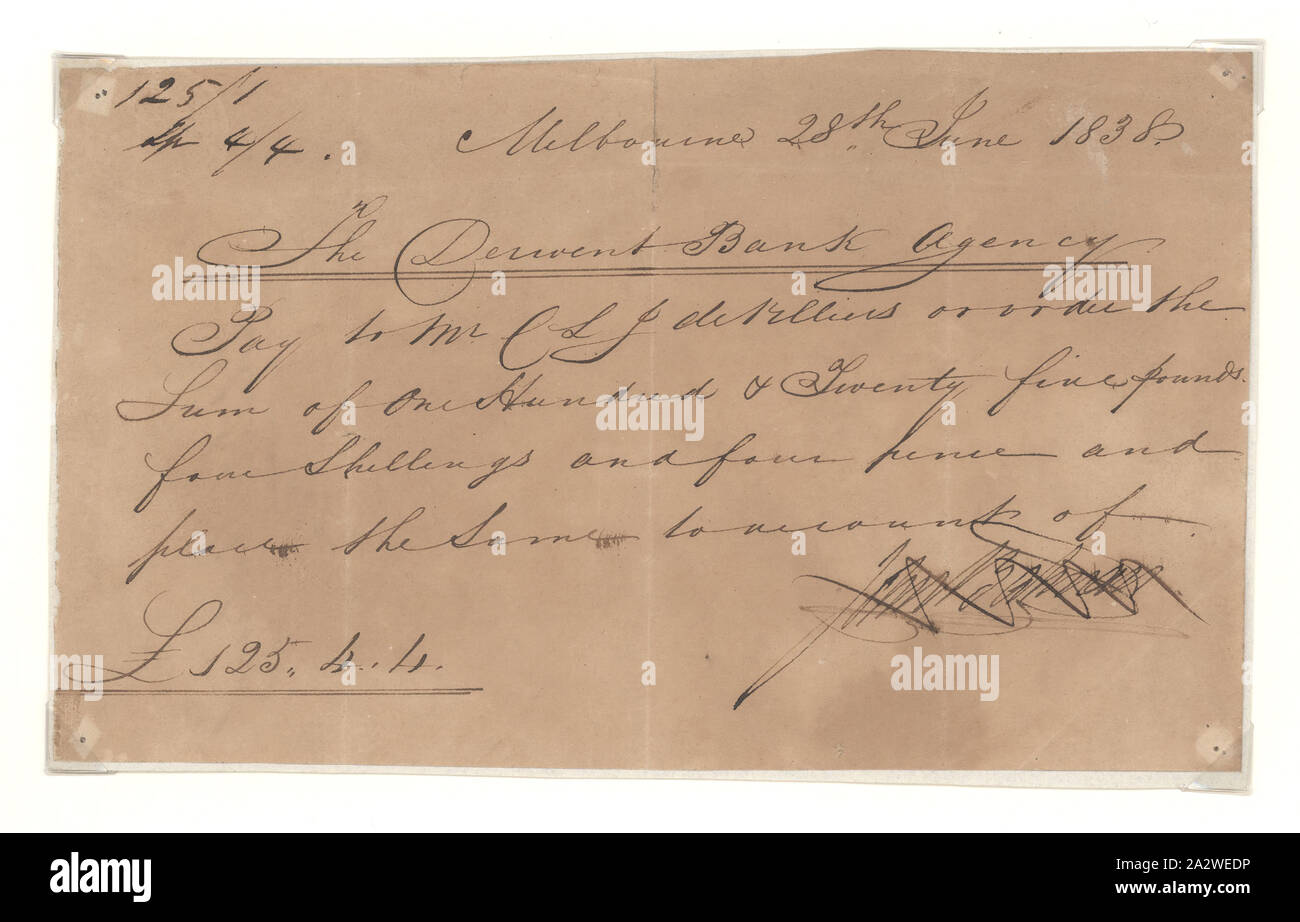 125/1
4/4.
Melbourne 28th June 1838.
The Derwent Bank Agency
Pay to Mr C L J de Villiers or order the
Sum of One Hundred & Twenty five pounds.
four Shillings and four pence and
place the Same to account of
£125,, 4. 4.
a alamy
alamy
Image ID: 2A2WEDP
www.alamy.com